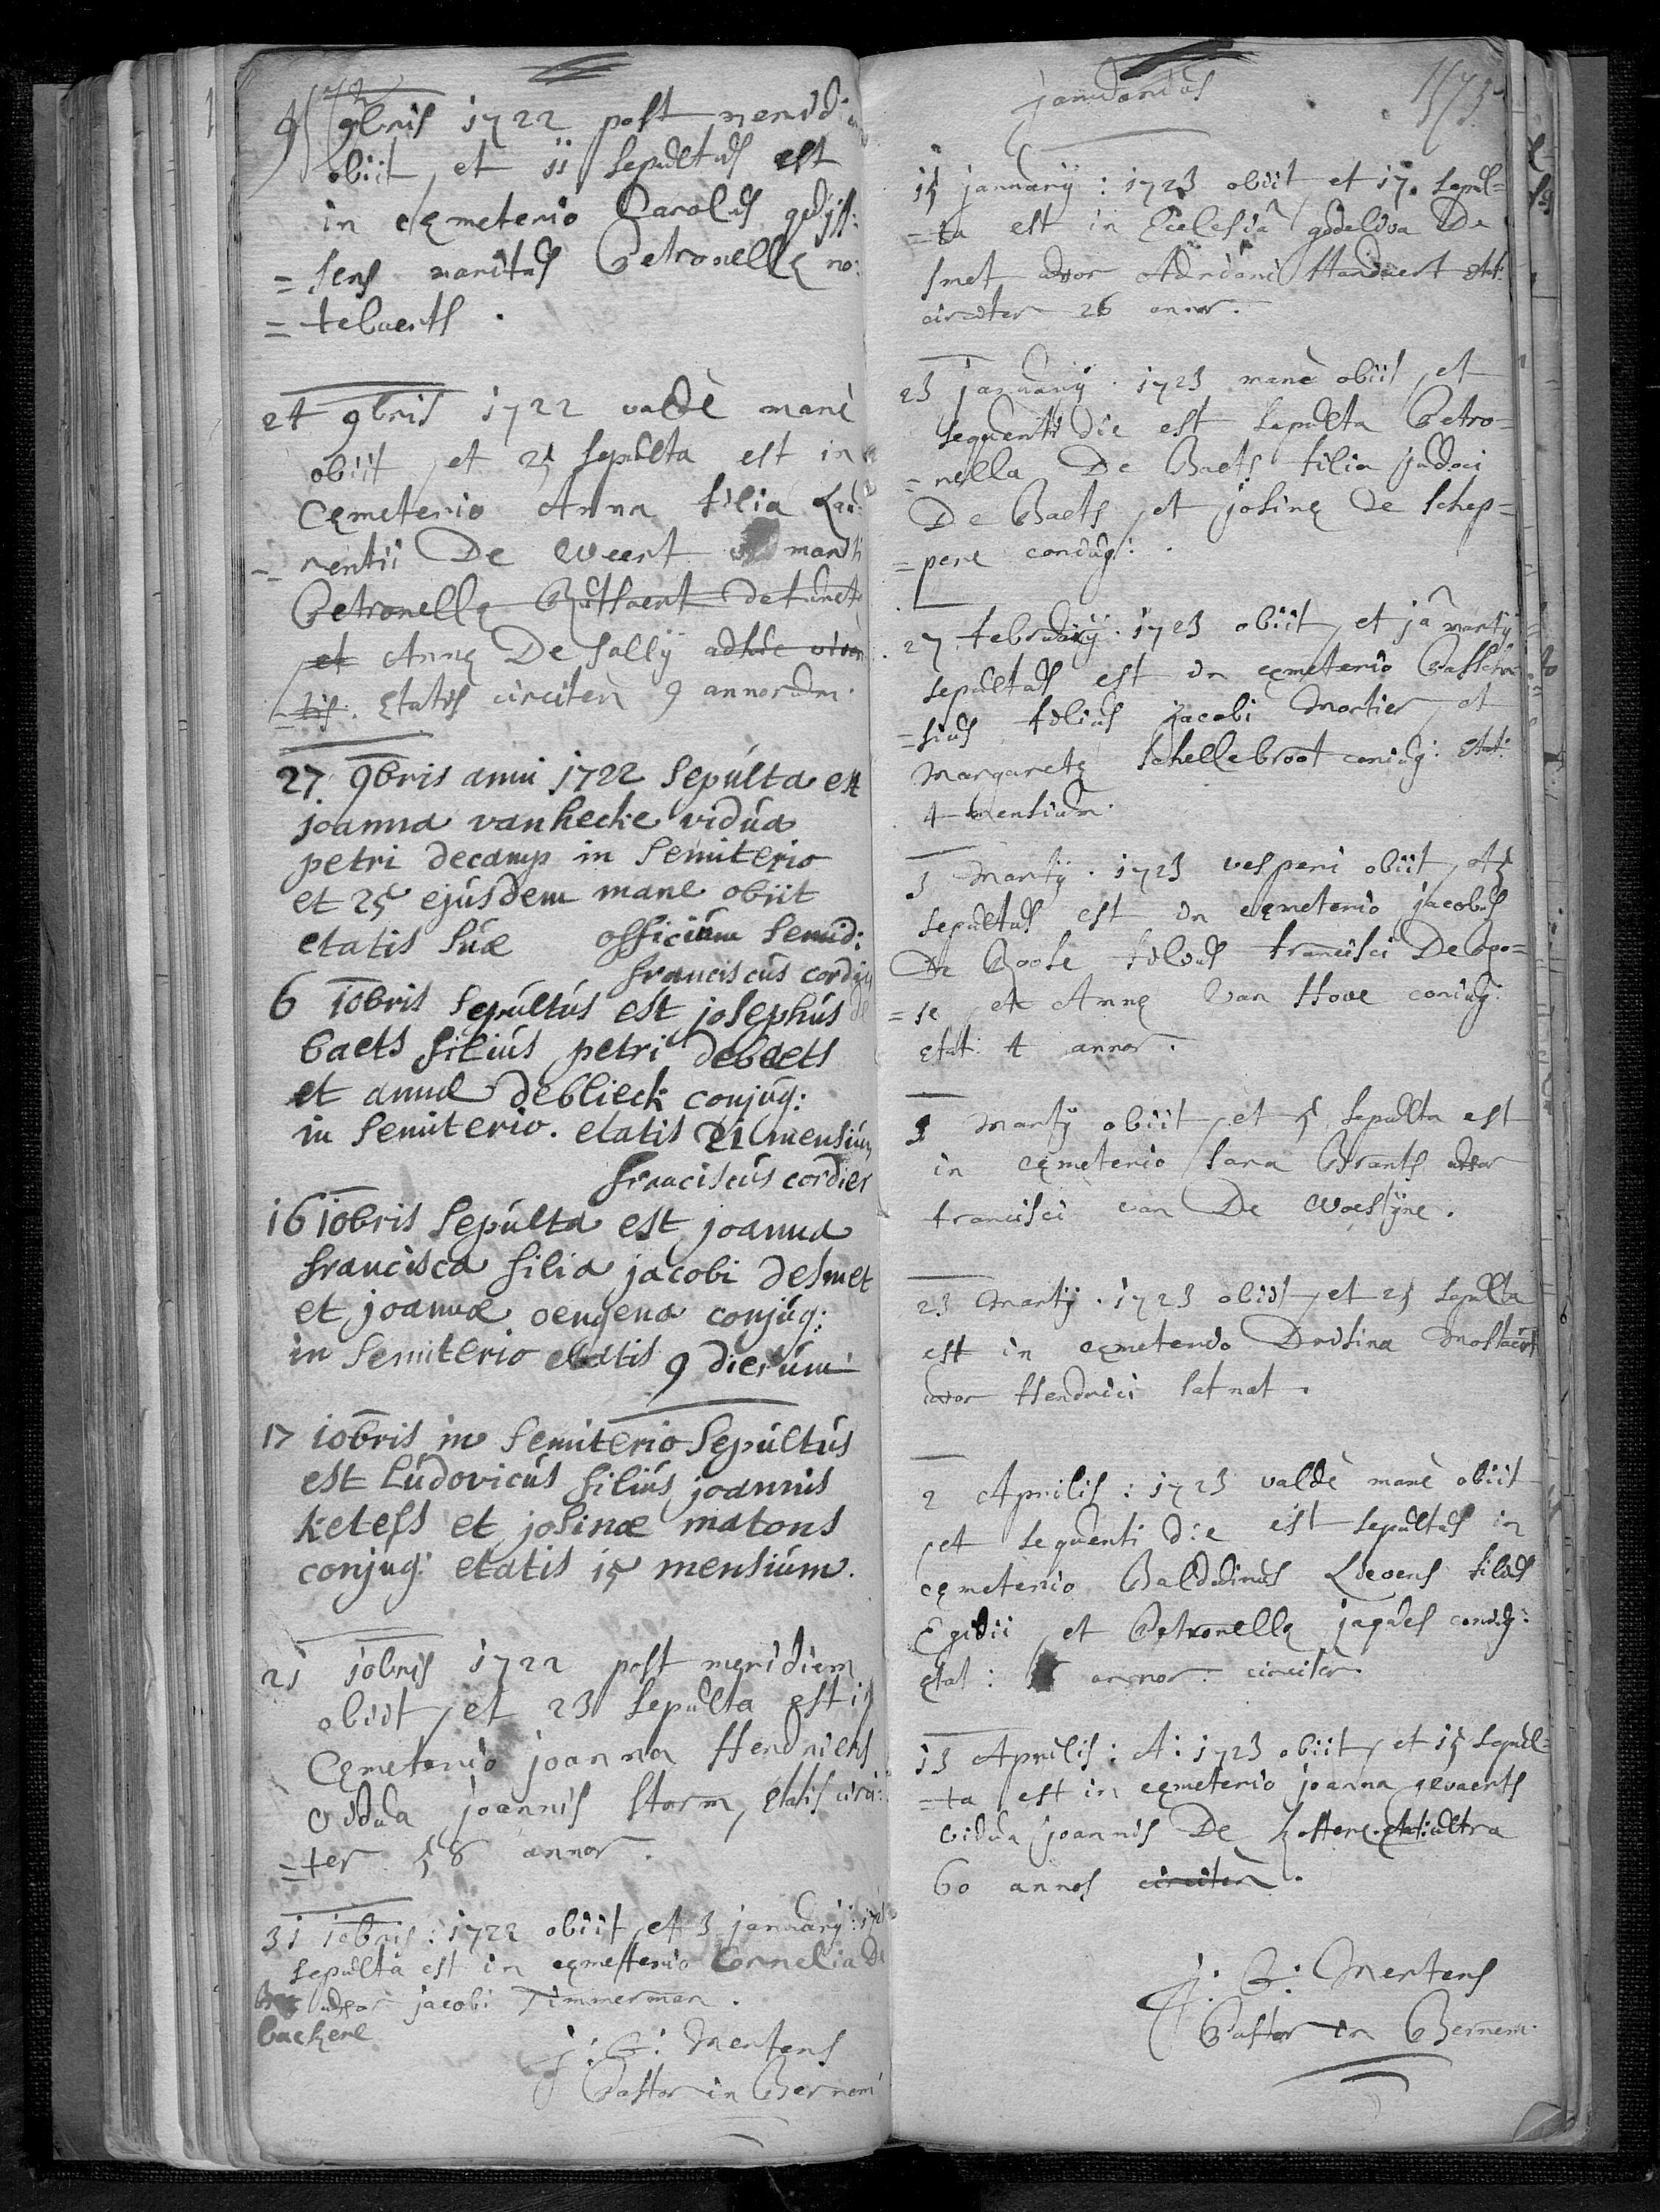 9 9bris 1722 post meridi
obiit, et 11 sepultus est
in cęmeterio Carolus
= sens maritus Petronellę no:
= telaerts.
24 9bris 1722 valdè manè
obiit, et 25 sepulta est in
Cęmeterio Anna filia Lau:
= rentii De Weert mariti
Petronellę Butsaert defunctę
et Annę De Sallÿ adhuc viven
= tis. ętatis circiter 9 annorum.
27 9bris anni 1722 sepúlta est
joanna vanhecke vidúa
petri decamp in semiterio
et 25 ejúsdem mane obiit
etatis súæ officiúm semid:
franciscús cordier
6 10bris sepúltús est josephús de
baets filiús petri debaets
et annæ deblieck conjúg:
in semiterio. etatis 21 mensiúm
franciscús cordier
16 10bris sepúlta est joanna
francisca filia jacobi desmet
et joannæ oengena conjúg:
in semiterio etatis 9 dierúm
17 10bris in semiterio sepúltús
est Lúdovicús filiús joannis
ketels et josinæ matons
conjug: etatis 15 mensiúm.
21 10bris 1722 post meridiem
obiit, et 23 sepulta est in
Cęmeterio joanna Hendriens
vidua joannis Storm, ętatis circi:
= ter 58 annor.
31 10bris: 1722 obiit, et 3 januarÿ: 1723
sepulta est in cęmeterio Cornelia De
uxor jacobi Timmerman.
backere
J: G: Mertens
Pastor in Bernem
januarius
173
15 januarÿ: 1723 obiit, et 17. sepul=
= ta est in Ecclesiâ godeliva De
smet uxor Adriani Standaert ętat:
circiter 26 annor.
23 januarÿ. 1723 manè obiit, et
sequenti die est sepulta Petro=
= nella De Baets filia judoci
De Baets, et josinę de schep=
= pere coniug:.
27. februarÿ. 1723 obiit, et 1â martÿ
sepultus est in cęmeterio
= sius filius jacobi Mortier, et
Margaretę Schellebroot coniug: ętat:
4 mensium.
3 Martÿ. 1723 vesperi obiit, et 5
sepultus est in cęmeterio jacobus
De Boose filius francisci De Boo=
= se, et Annę Van Hove coniug:
ętat: 4 annor.
3 Martÿ obiit, et 5 sepulta est
in cęmeterio Sara Brants uxor
francisci van De Woestÿne.
23 Martÿ. 1723 obiit, et 25 sepulta
est in cęmeterio Mostaert
uxor Hendrici latnat.
2 Aprilis: 1723 valdè manè obiit
, et sequenti die est sepultus in
cęmeterio Balduinus Lievens filius
Egidii, et Petronellę jaques coniug:
ętat: annor. circiter.
13 Aprilis: A: 1723 obiit, et 15 sepul=
= ta est in cęmeterio joanna gevaerts
vidua joannis De ętat: ultra
60 annos circiter.
J: G: Mertens
Pastor in Bernem